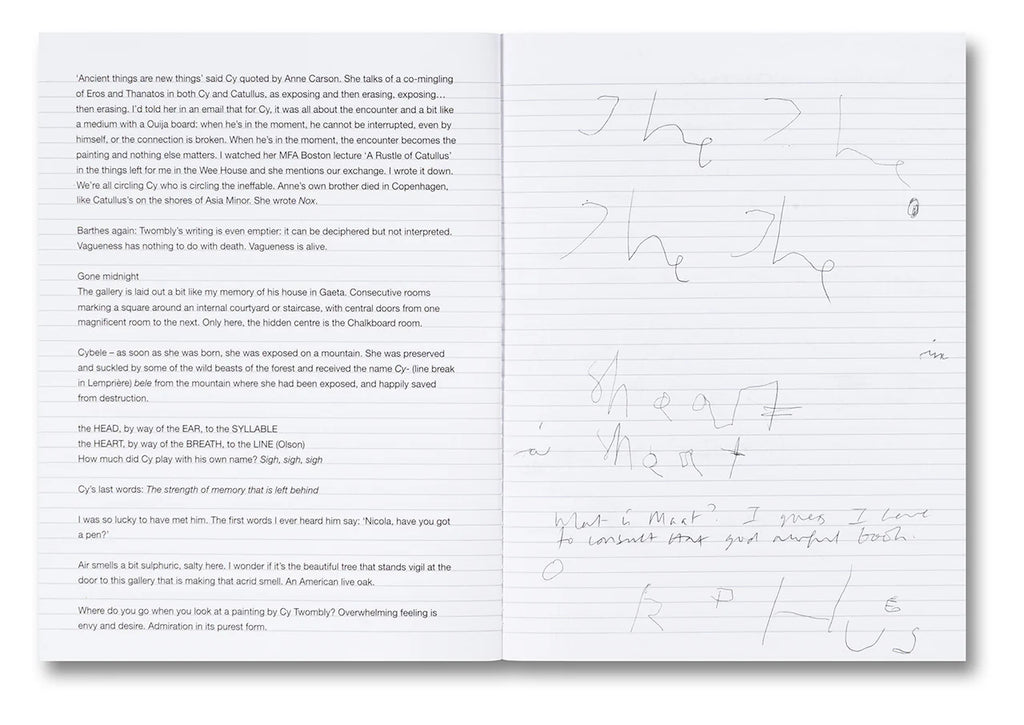 ‘Ancient things are new things’ said Cy quoted by Anne Carson. She talks of a co-mingling
of Eros and Thanatos in both Cy and Catullus, as exposing and then erasing, exposing…
then erasing. I’d told her in an email that for Cy, it was all about the encounter and a bit like
a medium with a Ouija board: when he’s in the moment, he cannot be interrupted, even by
himself, or the connection is broken. When he’s in the moment, the encounter becomes the
painting and nothing else matters. I watched her MFA Boston lecture ‘A Rustle of Catullus’
in the things left for me in the Wee House and she mentions our exchange. I wrote it down.
We’re all circling Cy who is circling the ineffable. Anne’s own brother died in Copenhagen,
like Catullus’s on the shores of Asia Minor. She wrote Nox.
Barthes again: Twombly’s writing is even emptier: it can be deciphered but not interpreted.
Vagueness has nothing to do with death. Vagueness is alive.
Gone midnight
The gallery is laid out a bit like my memory of his house in Gaeta. Consecutive rooms
marking a square around an internal courtyard or staircase, with central doors from one
magnificent room to the next. Only here, the hidden centre is the Chalkboard room.
Cybele – as soon as she was born, she was exposed on a mountain. She was preserved
and suckled by some of the wild beasts of the forest and received the name Cy- (line break
in Lemprière) bele from the mountain where she had been exposed, and happily saved
from destruction.
the HEAD, by way of the EAR, to the SYLLABLE
the HEART, by way of the BREATH, to the LINE (Olson)
How much did Cy play with his own name? Sigh, sigh, sigh
Cy’s last words: The strength of memory that is left behind
I was so lucky to have met him. The first words I ever heard him say: ‘Nicola, have you got
a pen?’
Air smells a bit sulphuric, salty here. I wonder if it’s the beautiful tree that stands vigil at the
door to this gallery that is making that acrid smell. An American live oak.
Where do you go when you look at a painting by Cy Twombly? Overwhelming feeling is
envy and desire. Admiration in its purest form.
The The
The The
in
What is Maat? I guess I have
to consult that god awful book.
O
R P H E
U S